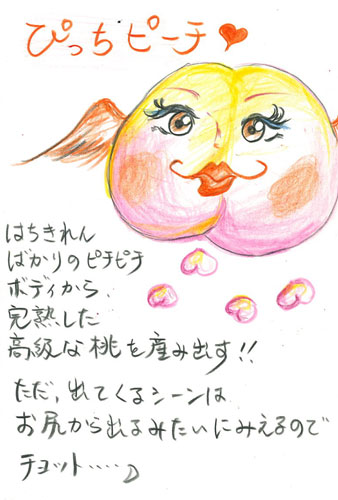 ぴっちピーチ♥
はちきれん
ばかりのピチピチ
ボディから、
完熟した
高級な桃を産み出す!!
ただ、出てくるシーンは
お尻から出るみたいにみえるので
チョット‥‥